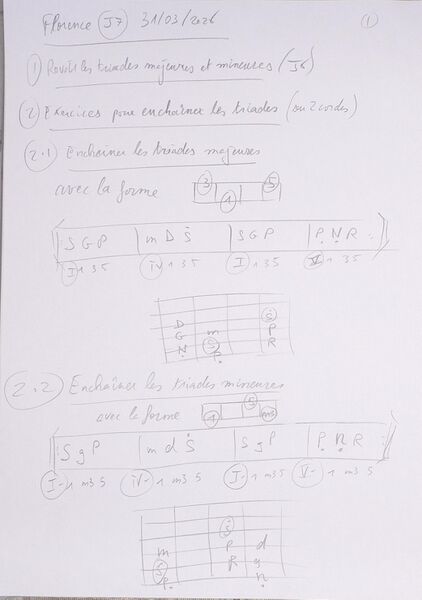 Florence J7 31/03/2026 1
1) Revoir les triades majeures et mineures (J6)
2) Exercices pour enchaîner les triades (sur 2 cordes)
2.1) Enchaîner les triades majeures
avec la forme 3 1 5
S G P | m D Ṡ | S G P | P̣ Ṇ R
I 1 3 5 IV 1 3 5 I 1 3 5 V 1 3 5
D Ṡ
G m P
Ṇ S R
P̣
2.2 Enchaîner les triades mineures
avec la forme 1 5 m3
S g P | m d Ṡ | S g P | P̣ ṇ R
I- 1 m3 5 IV- 1 m3 5 I- 1 m3 5 V- 1 m3 5
Ṡ
m P d
S R g
P̣ ṇ